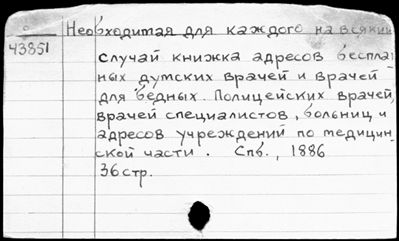 Необходимая для каждого на всякий
43851
случай книжка адресов бесплат
ных думских врачей и врачей
для бедных. Полицейских врачей,
врачей специалистов, больниц и
адресов учреждений по медицин-
ской части. Спб., 1886
36 стр.